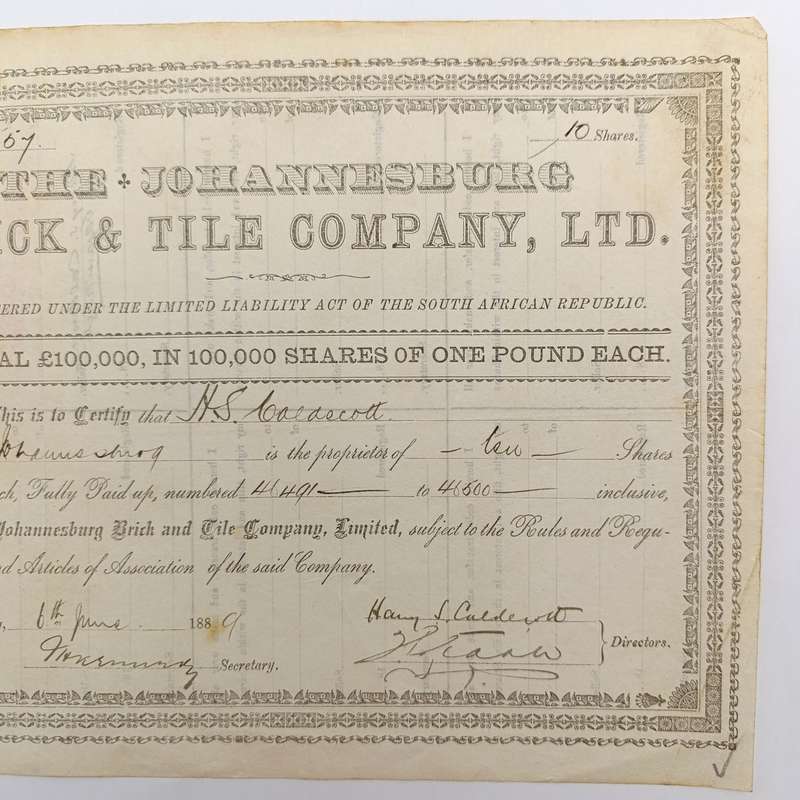 57.
10 Shares.
THE JOHANNESBURG
ICK & TILE COMPANY, LTD.
TERED UNDER THE LIMITED LIABILITY ACT OF THE SOUTH AFRICAN REPUBLIC.
AL £100,000, IN 100,000 SHARES OF ONE POUND EACH.
This is to Certify that H.S. Caldecott
Johannesburg is the proprietor of - ten - Shares
ch, Fully Paid up, numbered 46491 to 46500 inclusive,
Johannesburg Brick and Tile Company, Limited, subject to the Rules and Regu-
d Articles of Association of the said Company.
6th June 1889
Harry S. Caldecott
Directors.
Secretary.